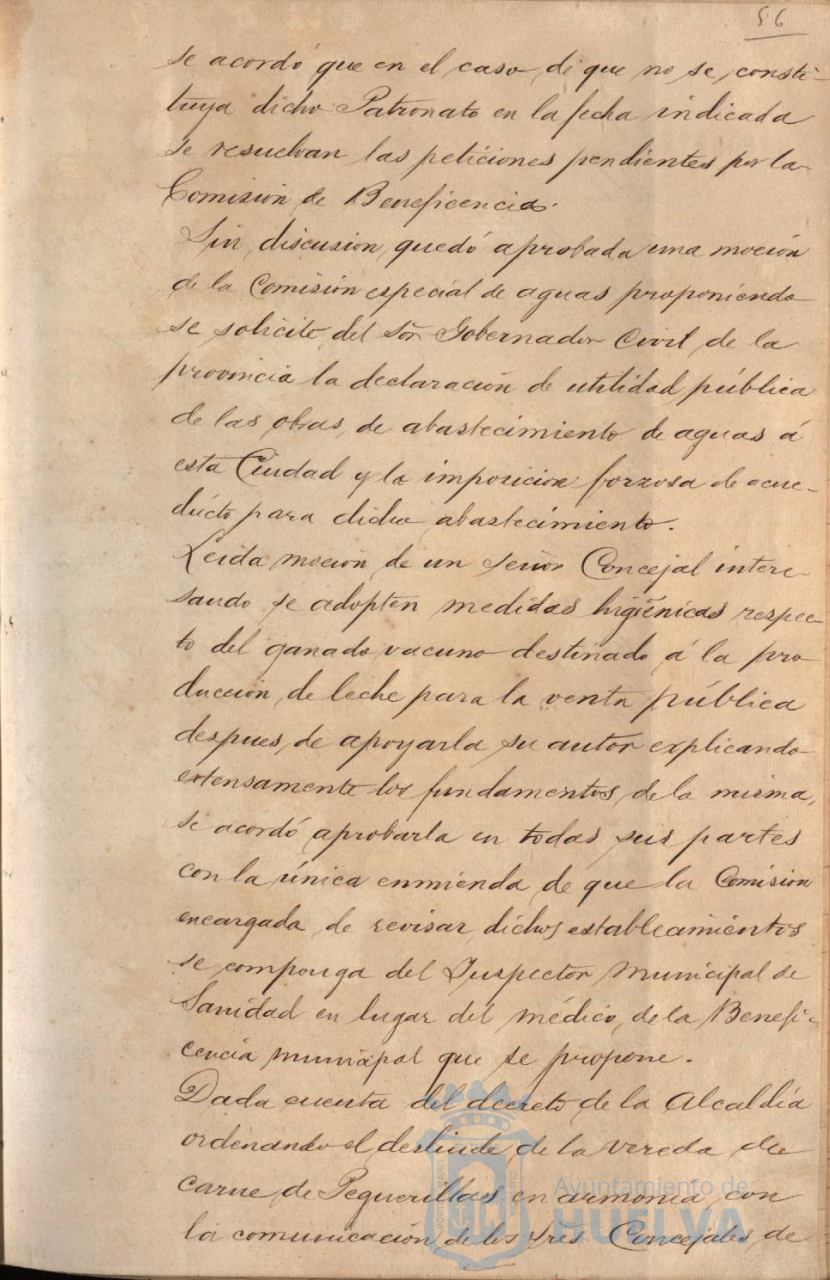 56
se acordó que en el caso de que no se consti-
tuya dicho Patronato en la fecha indicada
se resuelvan las peticiones pendientes por la
Comisión de Beneficencia.
Sin discusion quedó aprobada una moción
de la Comisión especial de aguas proponiendo
se solicite del Sor Gobernador Civil de la
provincia la declaración de utilidad pública
de las obras de abastecimiento de aguas á
esta Ciudad y la imposicion forzosa de acue-
ducto para dicho abastecimiento.
Leida moción de un señor Concejal intere-
sando se adopten medidas higiénicas respec-
to del ganado vacuno destinado á la pro
ducción de leche para la venta pública
despues de apoyarla su autor explicando
extensamente los fundamentos de la misma,
se acordó aprobarla en todas sus partes
con la única enmienda de que la Comision
encargada de revisar dichos establecimientos
se componga del Inspector Municipal de
Sanidad en lugar del médico de la Benefi-
cencia municipal que se propone.
Dada cuenta del decreto de la Alcaldía
ordenando el deslinde de la vereda de
carne de Peguerillas en armonía con
la comunicación de los tres Concejales de
Ayuntamiento de
HUELVA